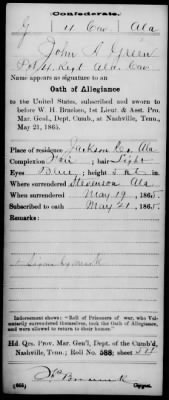 Confederate.
G | 4 Cav. | Ala
John S. Green
Pvt 4 Regt Ala. Cav.
Name appears as signature to an
Oath of Allegiance
to the United States, subscribed and sworn to
before W. H. Bracken, 1st Lieut. & Asst. Pro.
Mar. Genl., Dept. Cumb., at Nashville, Tenn.,
May 21, 1865.
Place of residence Jackson Co. Ala
Complexion Fair ; hair Light
Eyes Blue ; height 5 ft. in.
Where surrendered Stevenson Ala
When surrendered May 19 , 1865.
Subscribed to oath May 21 , 1865.
Remarks:
Signs by mark
Indorsement shows: "Roll of Prisoners of war, who Voluntarily surrendered themselves, took the Oath of Allegiance, and were allowed to return to their homes."
Hd. Qrs. Pro. Mar. Gen'l, Dept. of the Cumb'd,
Nashville, Tenn.; Roll No. 588; sheet
(665)
Copyist.